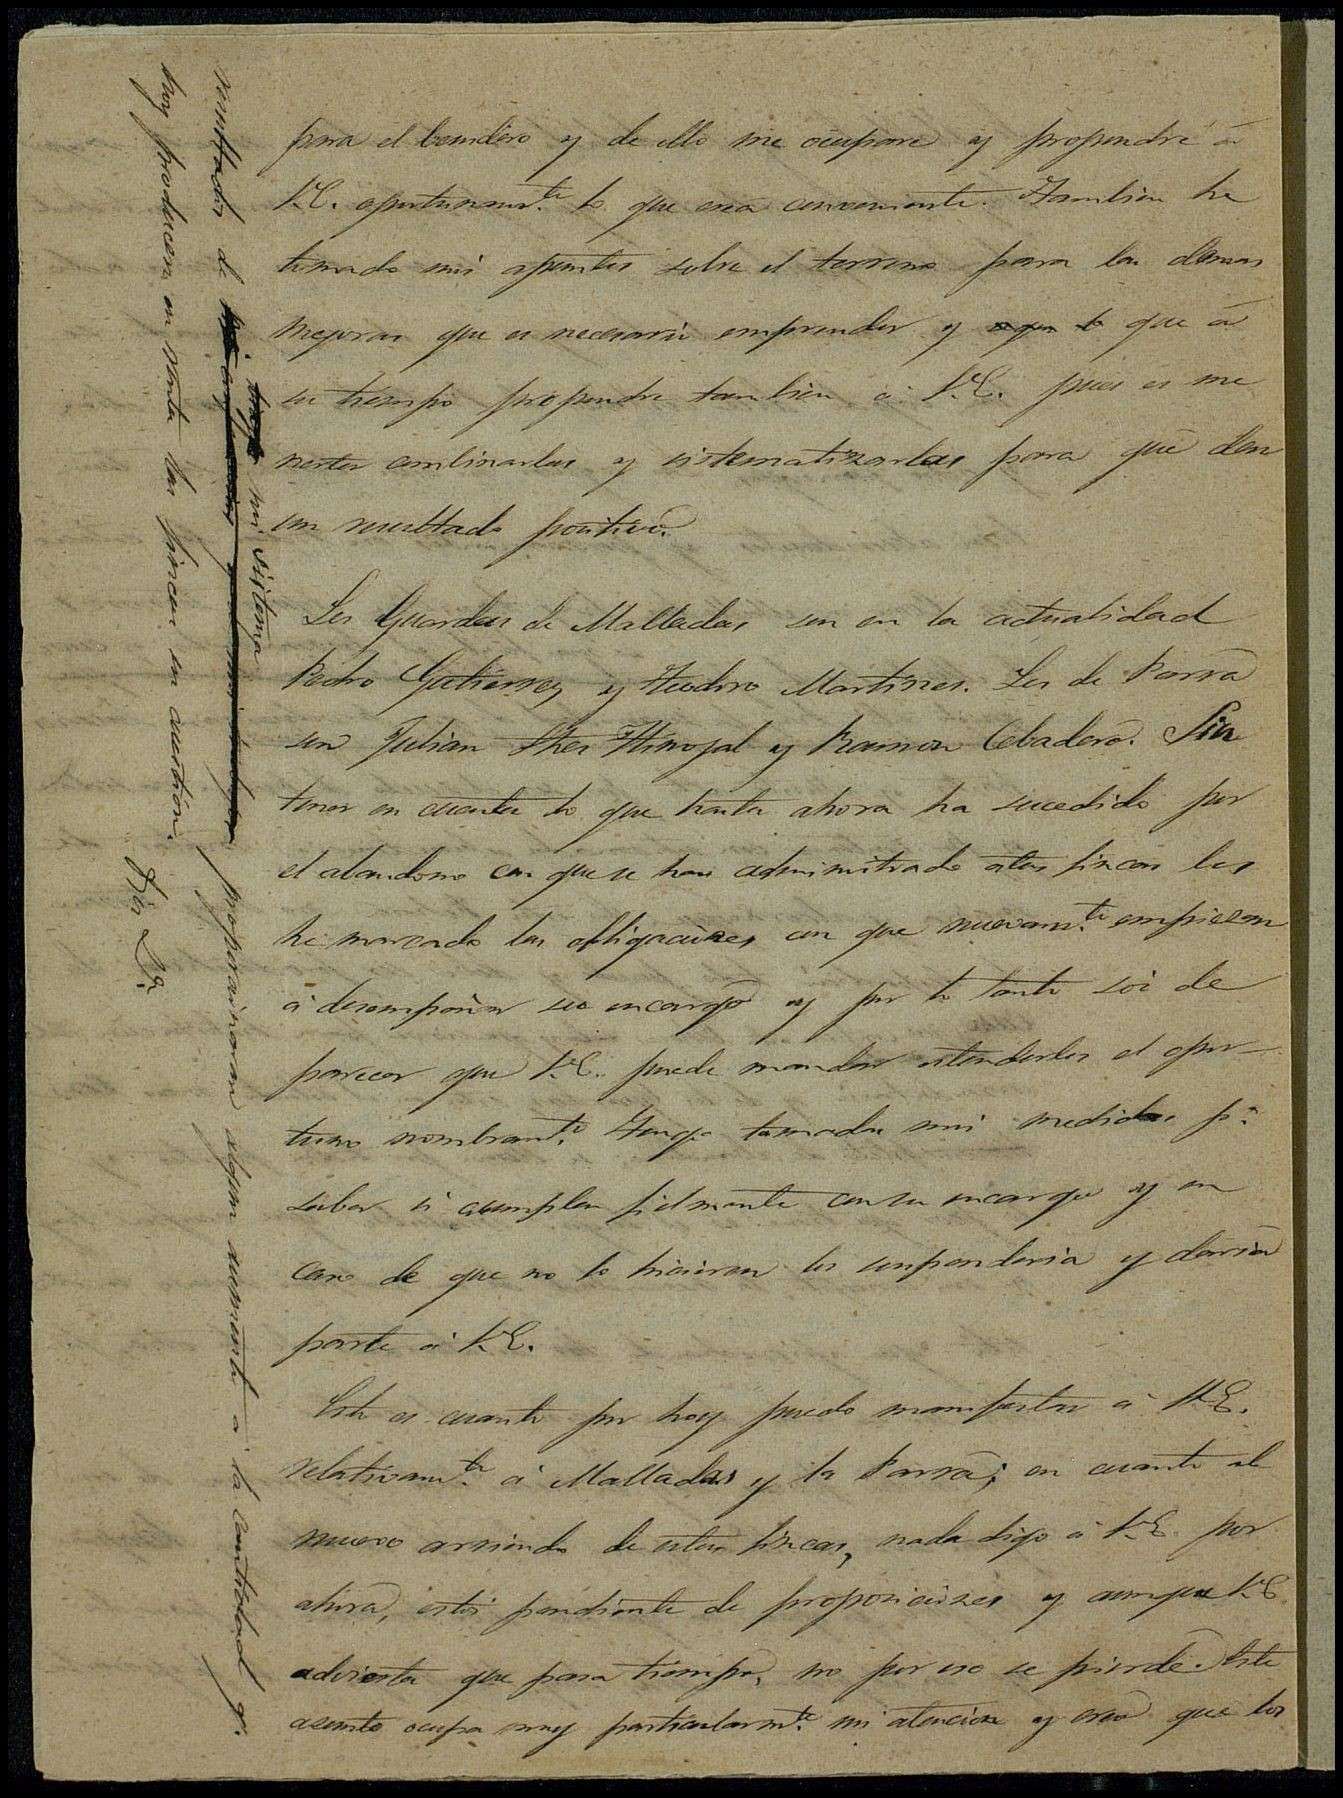 para el bandero y de ello me ocupare y propondré á
V.E. oportunam.te lo que crea conveniente. Tambien he
tomado mis apuntes sobre el terreno para las demas
mejoras que es necesario emprender y que á
su tiempo propondre tambien á V.E. pues es me
nester combinarlas y sistematizarlas para que den
un resultado positivo.
Los Guardas de Malladas son en la actualidad
Pedro Gutierrez y Teodoro Martines. Los de Parra
son Julian Hinojal y Ramon Cebadero. Sin
tener en cuenta lo que hasta ahora ha sucedido por
el abandono con que se han administrado estas fincas les
he marcado las obligaciones con que nuevam.te empiezan
á desempeñar su encargo y por lo tanto soi de
parecer que V.E. puede mandar estenderles el opor-
tuno nombram.to Tengo tomadas mis medidas p.a
saber si cumplen fielmente con su encargo y en
caso de que no lo hicieran los suspenderia y daria
parte á V.E.
Esto es cuanto por hoy puedo manifestar á V.E.
relativam.te á Malladas y la Parra; en cuanto al
nuevo arriendo de estas fincas, nada digo á V.E. por
ahora, estoi pendiente de proposiciones y aunque V.E.
advierta que pasa tiempo, no por eso se pierde. Este
asunto ocupa muy particularm.te mi atencion y creo que los
resultados de mi sistema proporcionaran algun aumento á la cantidad q.
hoy producen en renta las fincas en cuestion.
Dios G.